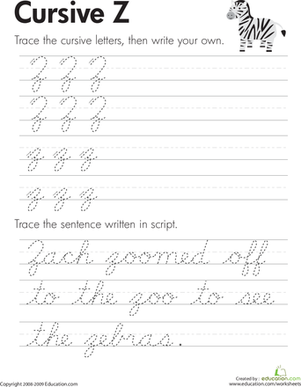 Cursive Z
Trace the cursive letters, then write your own.
Z Z Z
Z Z Z
z z z
z z z
Trace the sentence written in script.
Zach zoomed off
to the zoo to see
the zebras.
Copyright 2008-2009 Education.com
Created by: education.com
www.education.com/worksheets